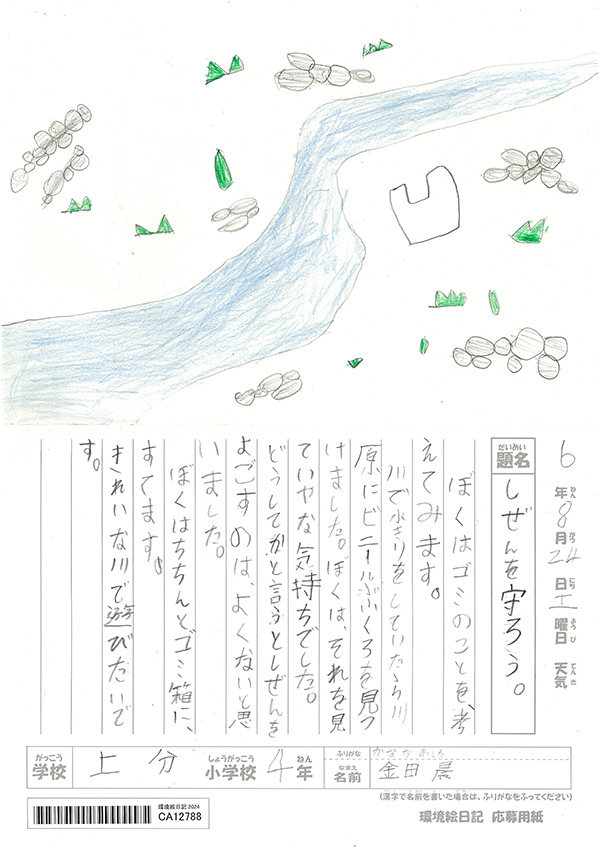 6年8月24日土曜日 天気
ねん がつ にち ようび てんき
だいめい
題名 しぜんを守ろう。
ぼくはゴミのことを、考
えてみます。
川で水きりをしていたら川
原にビニールぶくろを見つ
けました。ぼくは、それを見
ていやな気持ちでした。
どうしてかと言うとしぜんを
よごすのは、よくないと思
いました。
ぼくはちちんと、ゴミ箱に、
すてます。
きれいな川で遊びたいで
す。
がっこう しょうがっこう ねん ふりがな
学校 上分 小学校 4年
なまえ
名前 金田 晨
(漢字で名前を書いた場合は、ふりがなをふってください)
環境絵日記 2024
CA12788
環境絵日記 応募用紙